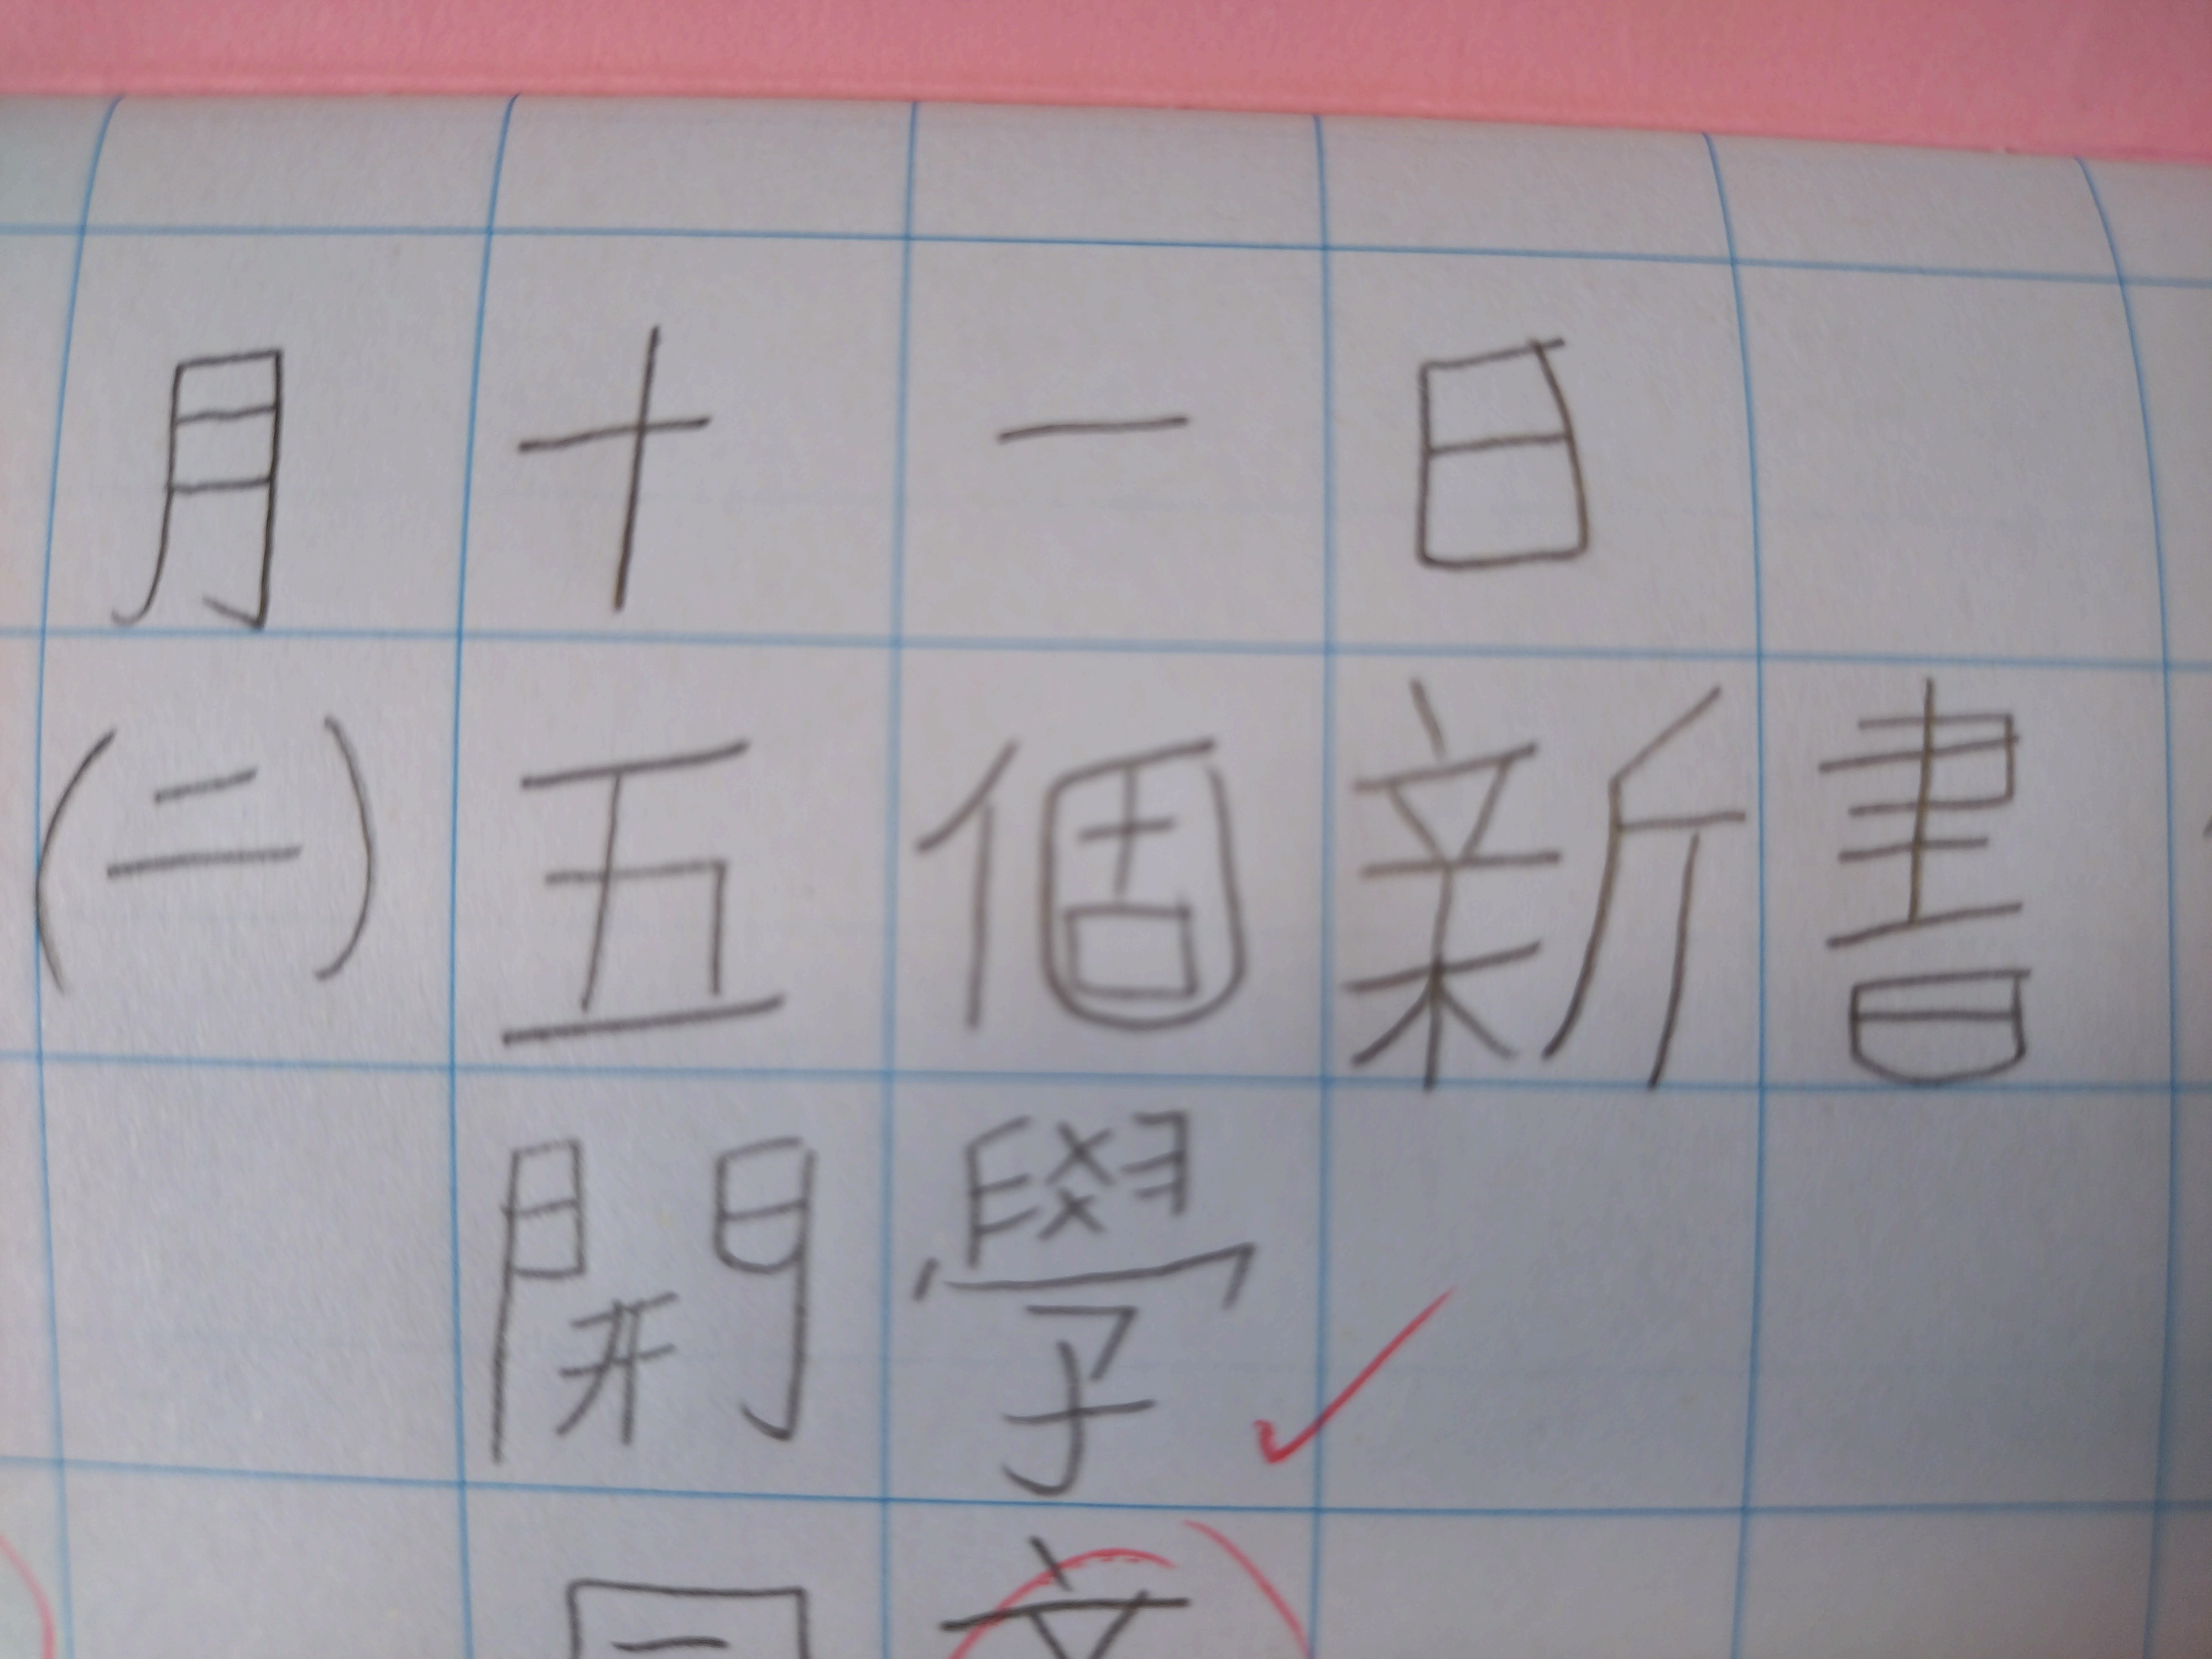 月十一日
(二)五個新書
開學